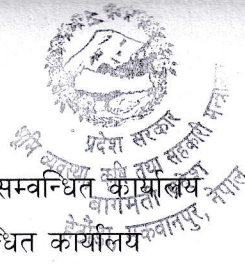 प्रदेश सरकार
भूमि व्यवस्था, कृषि तथा सहकारी मन्त्रा
बागमती प्रदेश
हेटौंडा, मकवानपुर, नेपाल
सम्वन्धित कार्यालय
धित कार्यालय